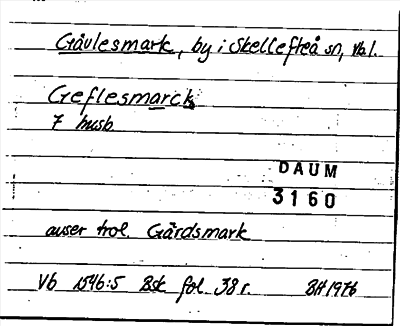 Gåulesmark, by i Skellefteå sn, Vbl.
Geflesmarck
7 husb.
DAUM
3160
auser trol. Gärdsmark
Vb 1546:5 Bsk fol. 38 r. BH 1976